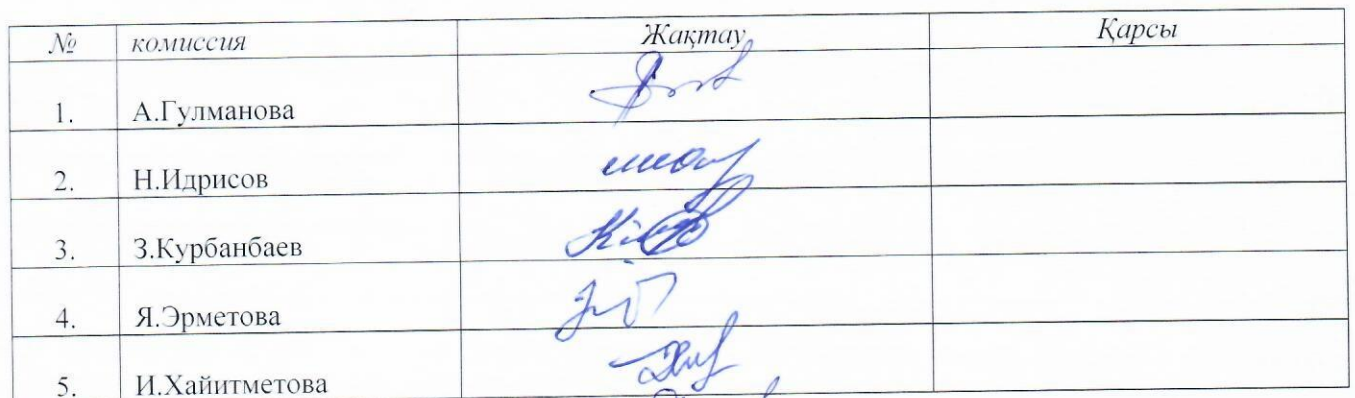 № комиссия Жақтау Қарсы
1. А.Гулманова
2. Н.Идрисов
3. З.Курбанбаев
4. Я.Эрметова
5. И.Хайитметова